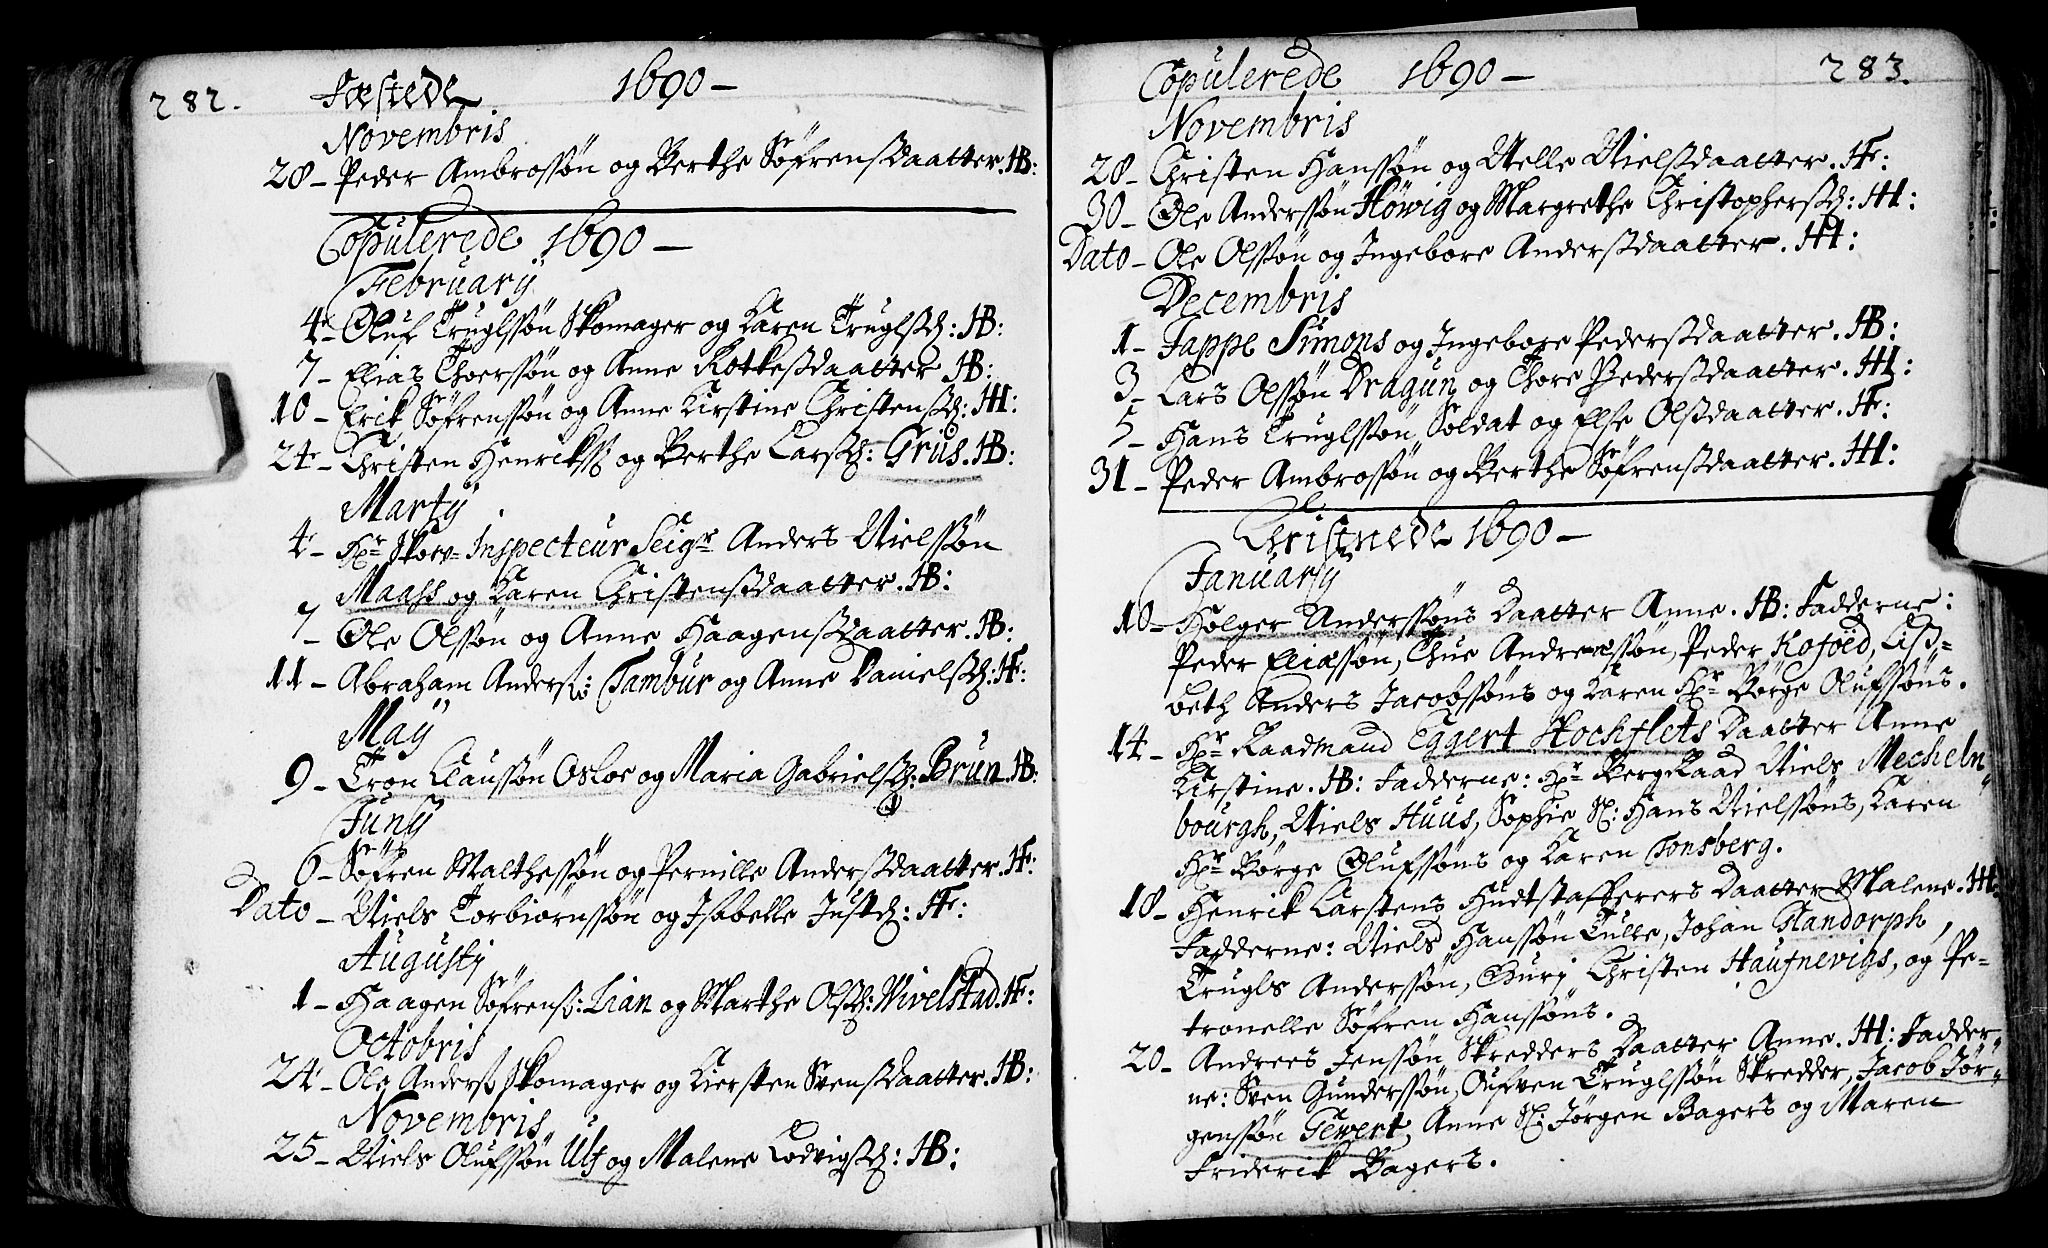 282. Fæstede 1690 –
Novembris
28 – Peder Ambrossøn og Berthe Søfrensdaatter. HB:
Copulerede 1690 –
February
4 – Oluf Truglssøn Skomager og Karen Truglsd: HB:
7 – Elias Thoerssøn og Anne Rotkesdaatter HB:
10 – Erik Søfrenssøn og Anne Kirstine Christensd: HH:
24 – Christen Henrikss og Berthe Larsd: Grüs. HB:
Martij
4 – Hr Skov- Inspecteur Seigr Anders Nielssøn
Maass og Karen Christensdaatter. HB:
7 – Ole Olssøn og Anne Haagensdaatter. HB:
11 – Abraham Anderss: Tambür og Anne Danielsd: HF:
Maij
9 – Tron Claussøn Osloe og Maria Gabrielsd: Brün HB:
Junij
6 – Søfren Malthessøn og Pernille Andersdaatter. HF:
Dato – Niels Torbiørnssøn og Isabelle Justd: HF:
Augustij
1 – Haagen Søfrens: Lian og Marthe Olsd: Wivelstad. HF:
Octobris
24 – Ole Anderss Skomager og Kiersten Svensdaatter. HB:
Novembris
25 – Niels Olufssøn Ulf og Malene Lodvigsd: HB:
Copulerede 1690 – 283.
Novembris
28 – Christen Hanssøn og Nelle Nielsdaatter. HF:
30 – Ole Anderssøn Höwig og Margrethe Christophersd: HH:
Dato – Ole Olssøn og Ingebore Andersdaatter. HH:
Decembris
1 – Jappe Simons og Ingebore Pedersdaatter. HB:
3 – Lars Olssøn Dragün og Thore Pedersdaatter. HH:
5 – Hans Truglssøn Soldat og Else Olsdaatter. HF:
31 – Peder Ambrossøn og Berthe Søfrensdaatter. HH:
Christnede 1690 –
January
10 – Holger Anderssøns Daatter Anne. HB: Fadderne:
Peder Eliassøn, Thue Andreassøn, Peder Kofoed, Liß-
beth Anders Jacobssøns og Karen Hr Börge Olufssøns.
14 – Hr Raadmand Eggert Stochflets Daatter Anne
Kirstine. HB: Fadderne: Hr BergRaad Niels Mecheln
bourgh, Niels Huus, Sophie Sl: Hans Nielssøns, Karen
Hr Börge Olufssøns og Karen Tonsberg.
18 – Henrik Carstens Hudtstafferers Daatter Malene. HH:
Fadderne: Niels Hanssøn Tulle, Johan Glandorph,
Trugls Anderssøn, Guri Christen Haufnevigs, og Pe-
tronelle Søfren Hanssøns.
20 – Andrees Jenssøn Skredders Daatter Anne. HH: Fadder
ne: Sven Gunderssøn, Truglssøn Skredder, Jacob Jør-
genssøn Gewert, Anne Sl: Jørgen Bagers og Maren
Friderik Bagers.